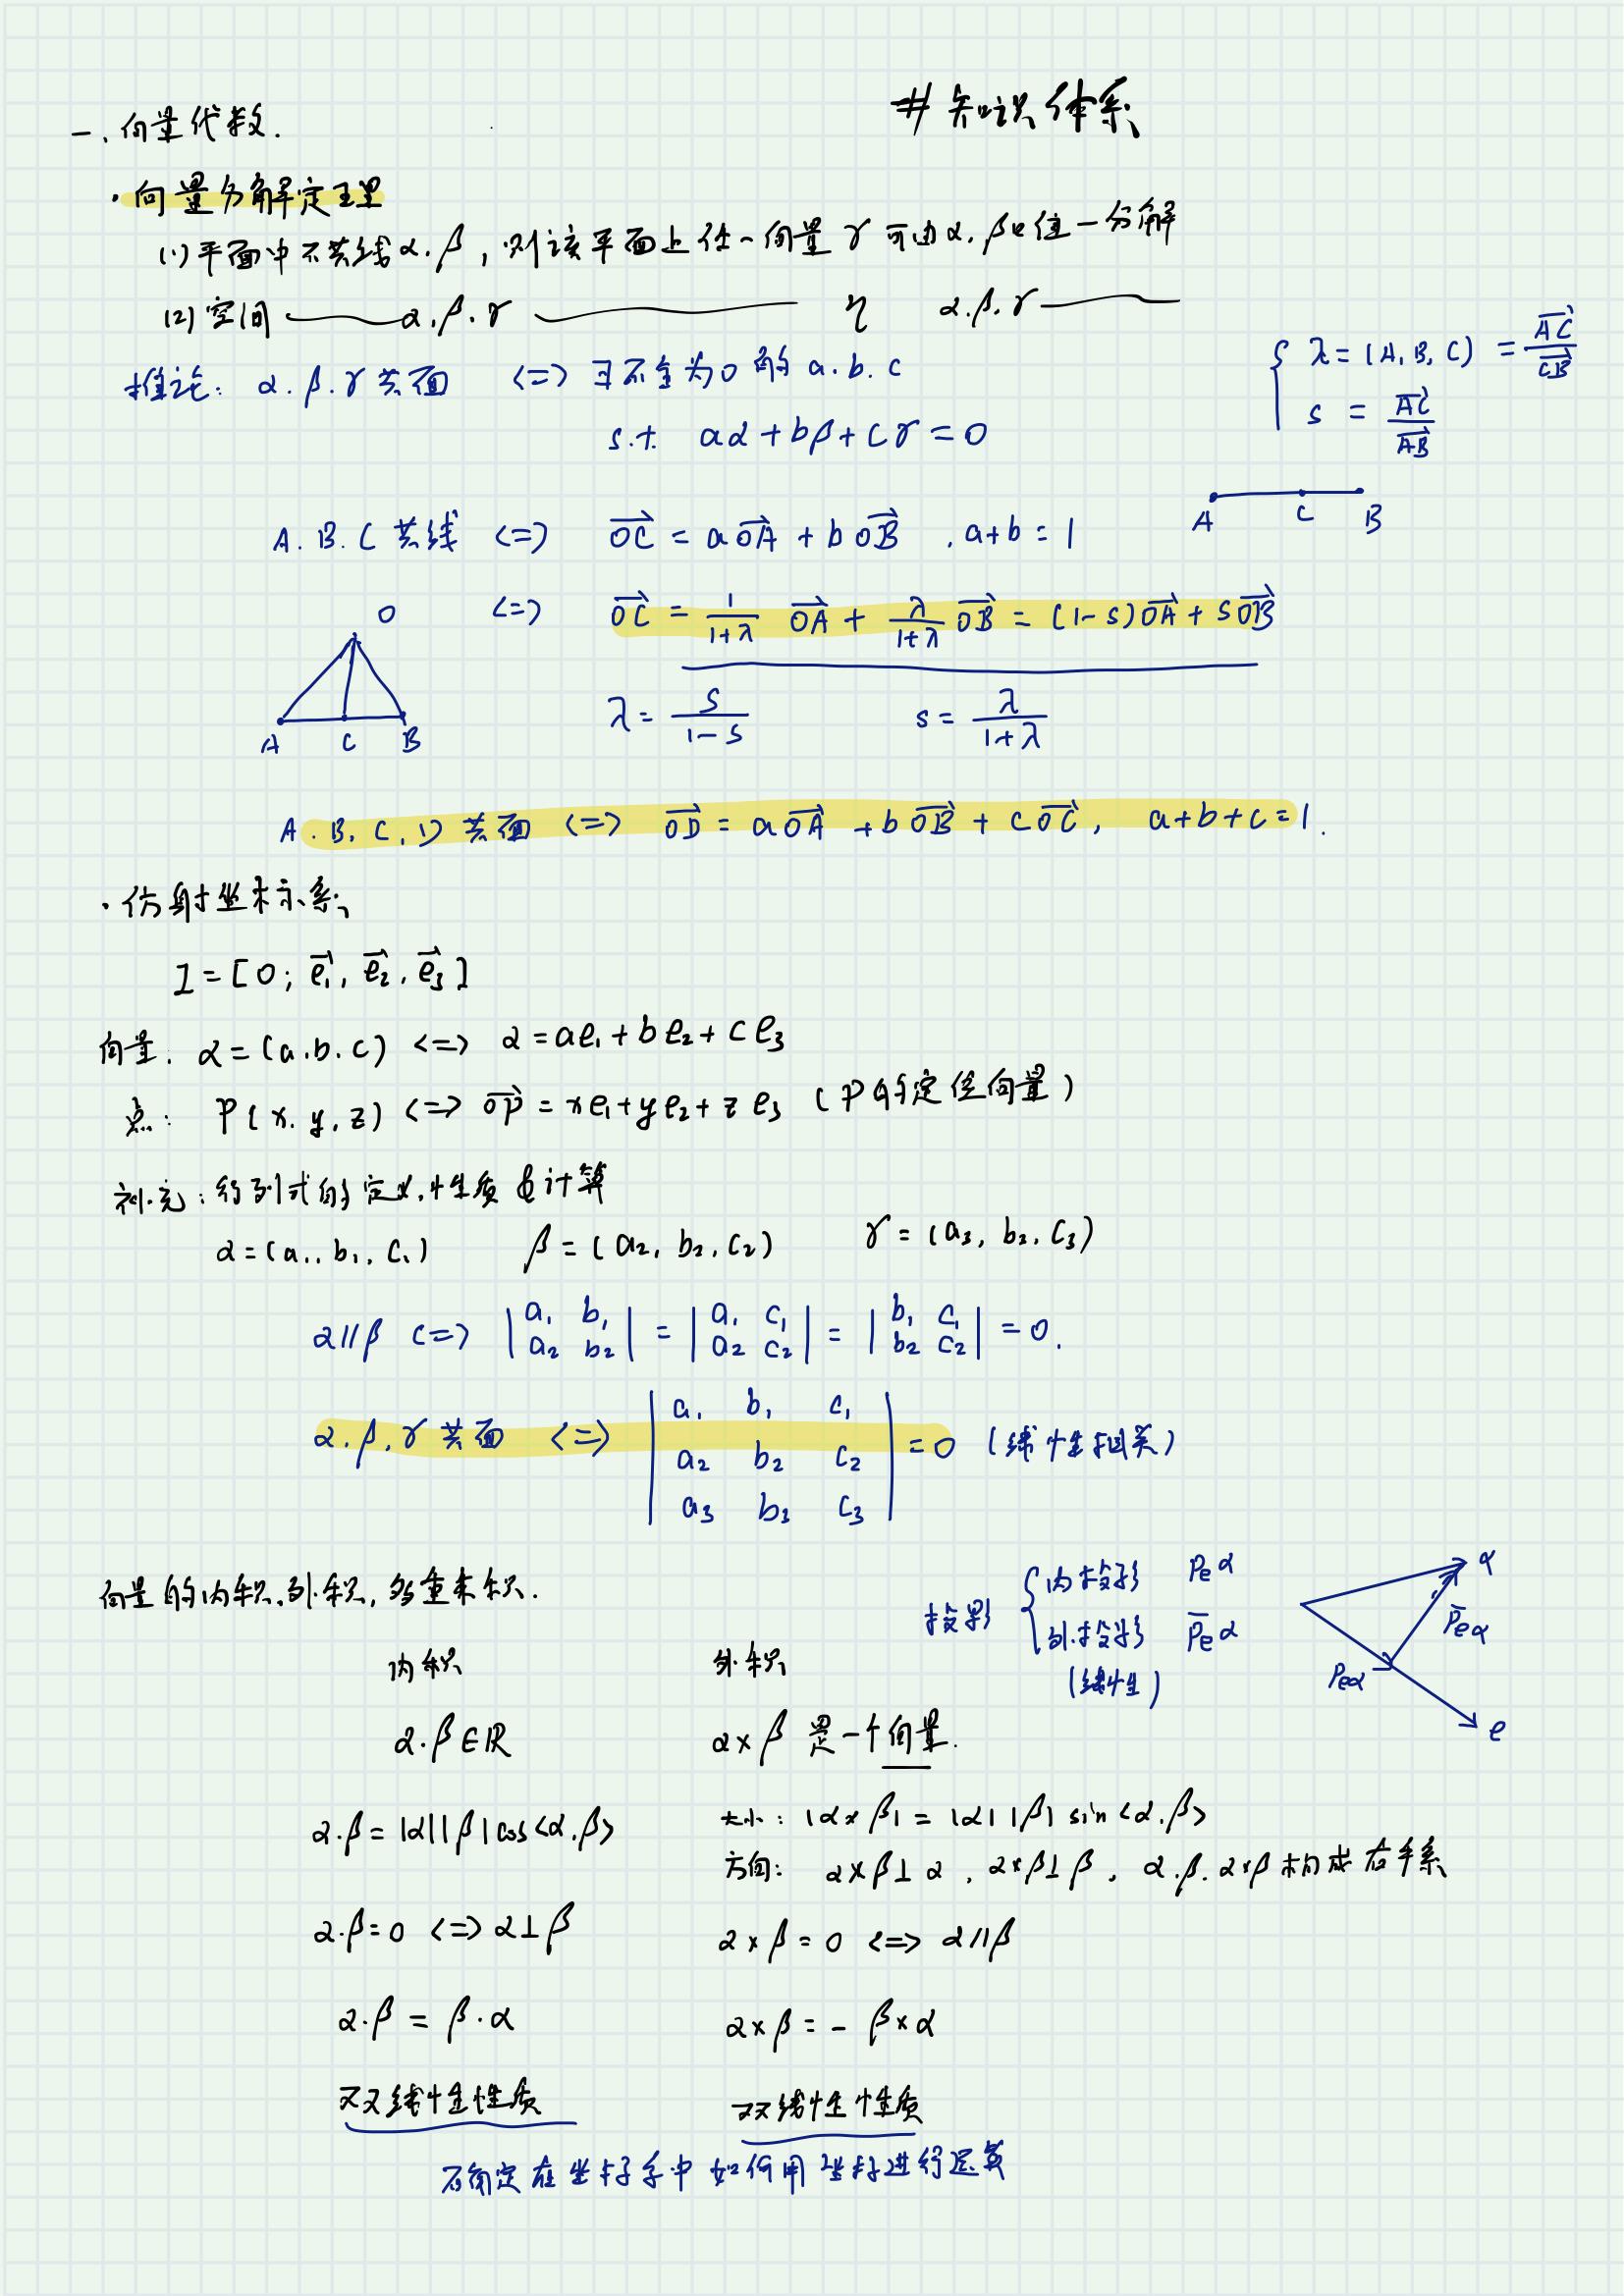 #知识体系
一、向量代数.
·向量分解定理
(1)平面中不共线α.β,则该平面上任一向量γ可由α.β唯一分解
(2)空间——α.β.γ—— η α.β.γ——
推论: α.β.γ共面 <=> ∃不全为0的a.b.c
s.t. aα+bβ+cγ=0
λ=(A,B,C)=\frac{\vec{AC}}{\vec{CB}}
s=\frac{\vec{AC}}{\vec{AB}}
A C B
A.B.C共线 <=> \vec{OC}=a\vec{OA}+b\vec{OB},a+b=1
<=> \vec{OC}=\frac{1}{1+λ}\vec{OA}+\frac{λ}{1+λ}\vec{OB}=(1-s)\vec{OA}+s\vec{OB}
O
A C B
λ=\frac{s}{1-s} s=\frac{λ}{1+λ}
A.B.C.D共面 <=> \vec{OD}=a\vec{OA}+b\vec{OB}+c\vec{OC}, a+b+c=1.
·仿射坐标系
I=[O;\vec{e_1},\vec{e_2},\vec{e_3}]
向量: α=(a.b.c) <=> α=ae₁+be₂+ce₃
点: P(x.y.z) <=> \vec{OP}=xe₁+ye₂+ze₃ (P的定位向量)
补充:行列式的定义,性质及计算
α=(a₁,b₁,c₁) β=(a₂,b₂,c₂) γ=(a₃,b₃,c₃)
α//β <=> \begin{vmatrix}a₁&b₁\\a₂&b₂\end{vmatrix}=\begin{vmatrix}a₁&c₁\\a₂&c₂\end{vmatrix}=\begin{vmatrix}b₁&c₁\\b₂&c₂\end{vmatrix}=0.
α.β.γ共面 <=> \begin{vmatrix}a₁&b₁&c₁\\a₂&b₂&c₂\\a₃&b₃&c₃\end{vmatrix}=0 (线性相关)
向量的内积,外积,多重乘积.
投影
内投影 Pₑα
外投影 \bar{P}ₑα
(线性)
α
\bar{P}ₑα
Pₑα
e
内积 外积
α·β∈ℝ α×β是一个向量.
α·β=|α||β|cos<α.β> 大小: |α×β|=|α||β|sin<α.β>
方向: α×β⊥α,α×β⊥β,α.β.α×β构成右手系
α·β=0 <=> α⊥β α×β=0 <=> α//β
α·β=β·α α×β=-β×α
双线性性质 双线性性质
确定在坐标系中如何用坐标进行运算